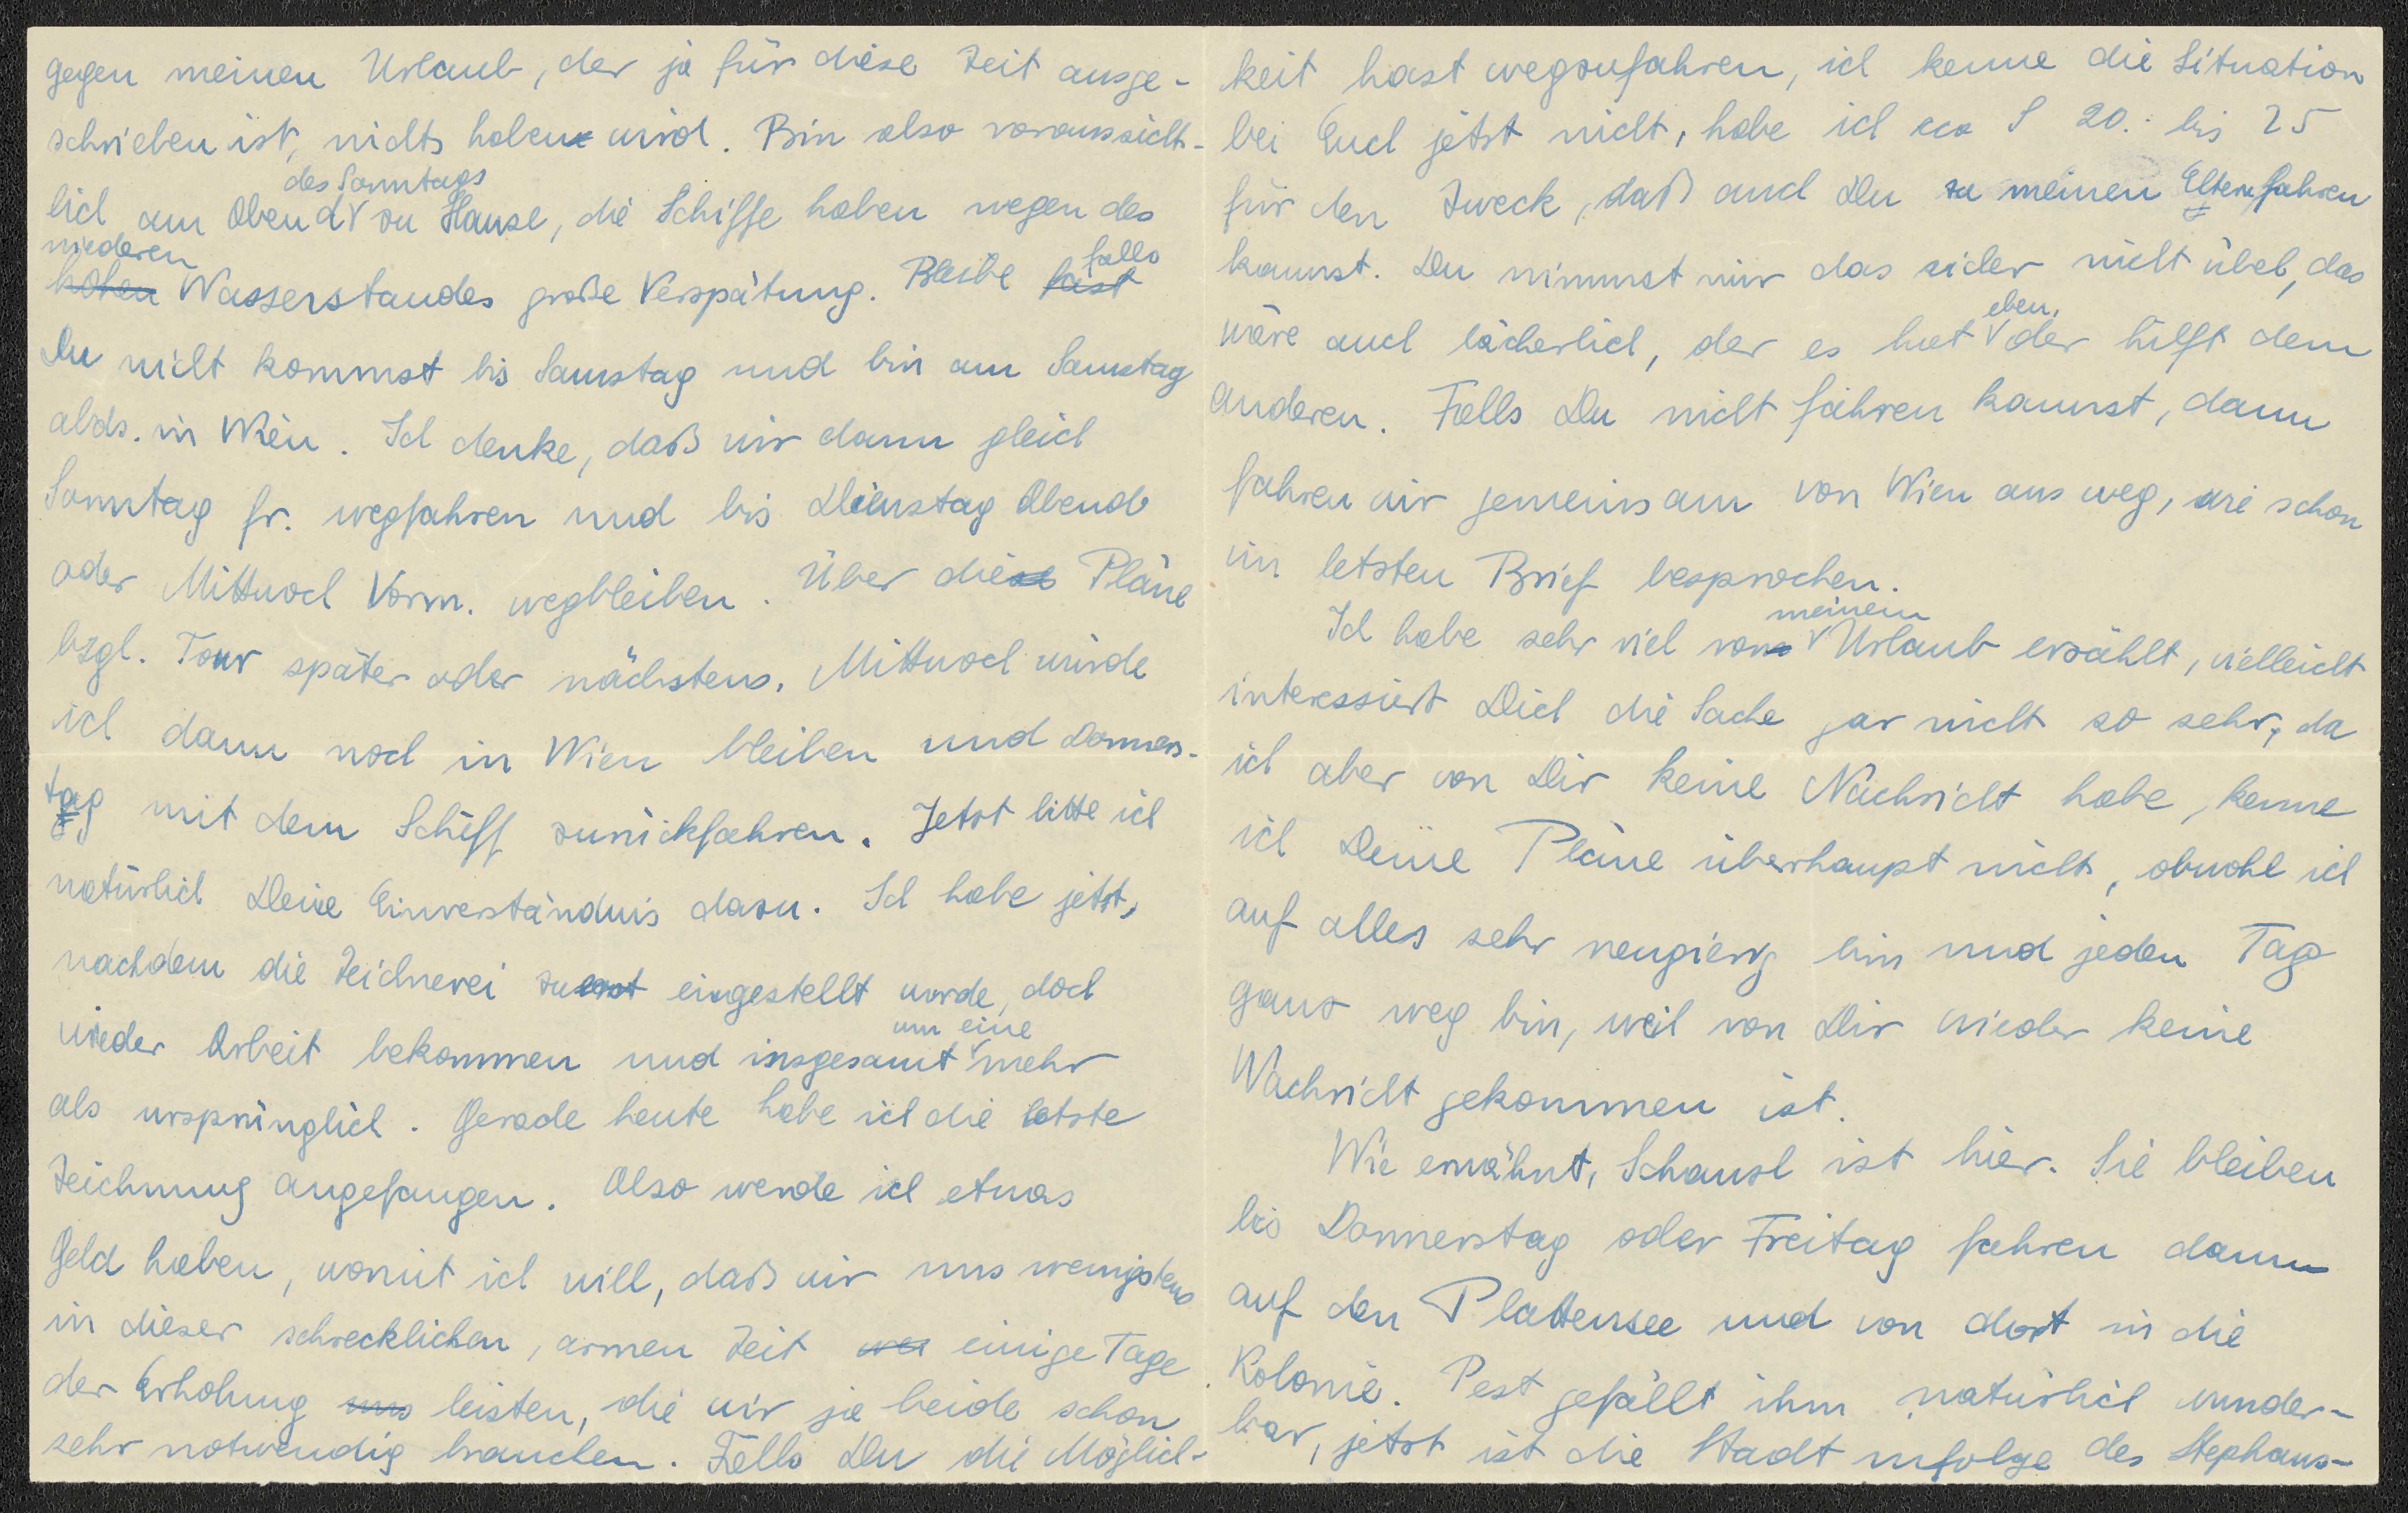 gegen meinen Urlaub, der ja für diese Zeit ausge-
schrieben ist, nichts haben wird. Bin also voraussicht-
lich am Abend des Sonntags zu Hause, die Schiffe haben wegen des
hohen niederen Wasserstandes große Verspätung. Bleibe fast falls
Du nicht kommst bis Samstag und bin am Samstag
abds. in Wien. Ich denke, daß wir dann gleich
Sonntag fr. wegfahren und bis Dienstag Abend
oder Mittwoch Vorm. wegbleiben. Über die Pläne
bzgl. Tour später oder nächstens. Mittwoch würde
ich dann noch in Wien bleiben und Donners-
tag mit dem Schiff zurückfahren. Jetzt bitte ich
natürlich Deine Einverständnis dazu. Ich habe jetzt,
nachdem die Zeichnerei zuerst eingestellt wurde, doch
wieder Arbeit bekommen und insgesamt um eine mehr
als ursprünglich. Gerade heute habe ich die letzte
Zeichnung angefangen. Also werde ich etwas
Geld haben, womit ich will, daß wir uns wenigstens
in dieser schrecklichen, armen Zeit einige Tage
der Erholung uns leisten, die wir ja beide schon
sehr notwendig brauchen. Falls Du die Möglich-
keit hast wegzufahren, ich kenne die Situation
bei Euch jetzt nicht, habe ich cca S 20.- bis 25
für den Zweck, daß auch Du zu meinen Eltern fahren
kannst. Du nimmst mir das sicher nicht übel, das
wäre auch lächerlich, der es hat eben, der hilft dem
anderen. Falls Du nicht fahren kannst, dann
fahren wir gemeinsam von Wien aus weg, wie schon
im letzten Brief besprochen.
Ich habe sehr viel von meinem Urlaub erzählt, vielleicht
interessiert Dich die Sache gar nicht so sehr, da
ich aber von Dir keine Nachricht habe, kenne
ich Deine Pläne überhaupt nicht, obwohl ich
auf alles sehr neugierig bin und jeden Tag
ganz weg bin, weil von Dir wieder keine
Nachricht gekommen ist.
Wie erwähnt, Schausl ist hier. Sie bleiben
bis Donnerstag oder Freitag fahren dann
auf den Plattensee und von dort in die
Kolonie. Pest gefällt ihm natürlich wunder-
bar, jetzt ist die Stadt infolge des Stephans-